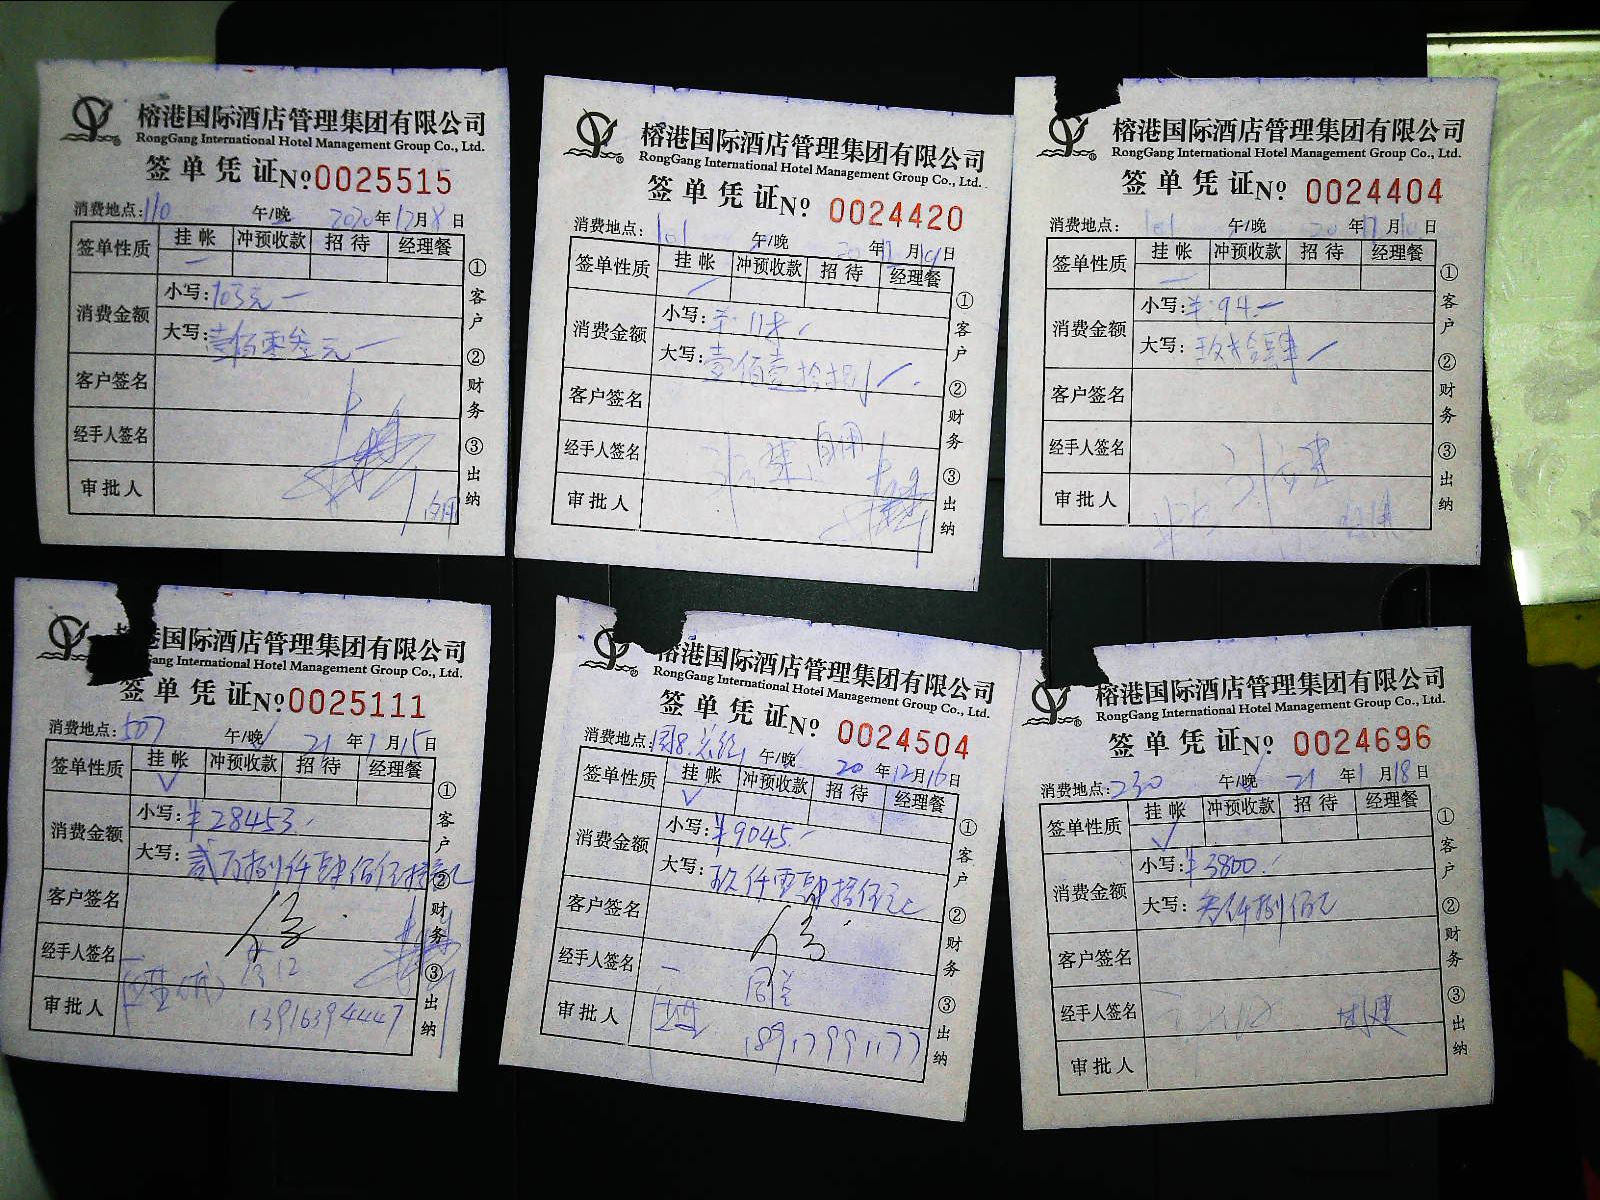 榕港国际酒店管理集团有限公司
RongGang International Hotel Management Group Co., Ltd.
签单凭证№0025515
消费地点:110 午/晚 2020年12月8日
签单性质 挂帐 冲预收款 招待 经理餐
消费金额 小写:103元
大写:壹佰零叁元
客户签名
经手人签名
审批人
①客户 ②财务 ③出纳
榕港国际酒店管理集团有限公司
RongGang International Hotel Management Group Co., Ltd.
签单凭证№0024420
消费地点:101 午/晚 20年 月 日
签单性质 挂帐 冲预收款 招待 经理餐
消费金额 小写:¥118
大写:壹佰壹拾捌
客户签名
经手人签名 自用
审批人
①客户 ②财务 ③出纳
榕港国际酒店管理集团有限公司
RongGang International Hotel Management Group Co., Ltd.
签单凭证№0024404
消费地点:101 午/晚 20年 月 日
签单性质 挂帐 冲预收款 招待 经理餐
消费金额 小写:¥94
大写:玖拾肆
客户签名
经手人签名
审批人
①客户 ②财务 ③出纳
国际酒店管理集团有限公司
ang International Hotel Management Group Co., Ltd.
签单凭证№0025111
消费地点:507 午/晚 21年1月15日
签单性质 挂帐 冲预收款 招待 经理餐
消费金额 小写:¥28453
大写:贰万捌仟肆佰伍拾叁元
客户签名
经手人签名
审批人 13916394447
①客户 ②财务 ③出纳
榕港国际酒店管理集团有限公司
RongGang International Hotel Management Group Co., Ltd.
签单凭证№0024504
消费地点: 午/晚 20年12月16日
签单性质 挂帐 冲预收款 招待 经理餐
消费金额 小写:¥9045
大写:玖仟零肆拾伍元
客户签名
经手人签名
审批人 18917991177
①客户 ②财务 ③出纳
榕港国际酒店管理集团有限公司
RongGang International Hotel Management Group Co., Ltd.
签单凭证№0024696
消费地点:230 午/晚 21年1月18日
签单性质 挂帐 冲预收款 招待 经理餐
消费金额 小写:¥3800
大写:叁仟捌佰元
客户签名
经手人签名
审批人
①客户 ②财务 ③出纳